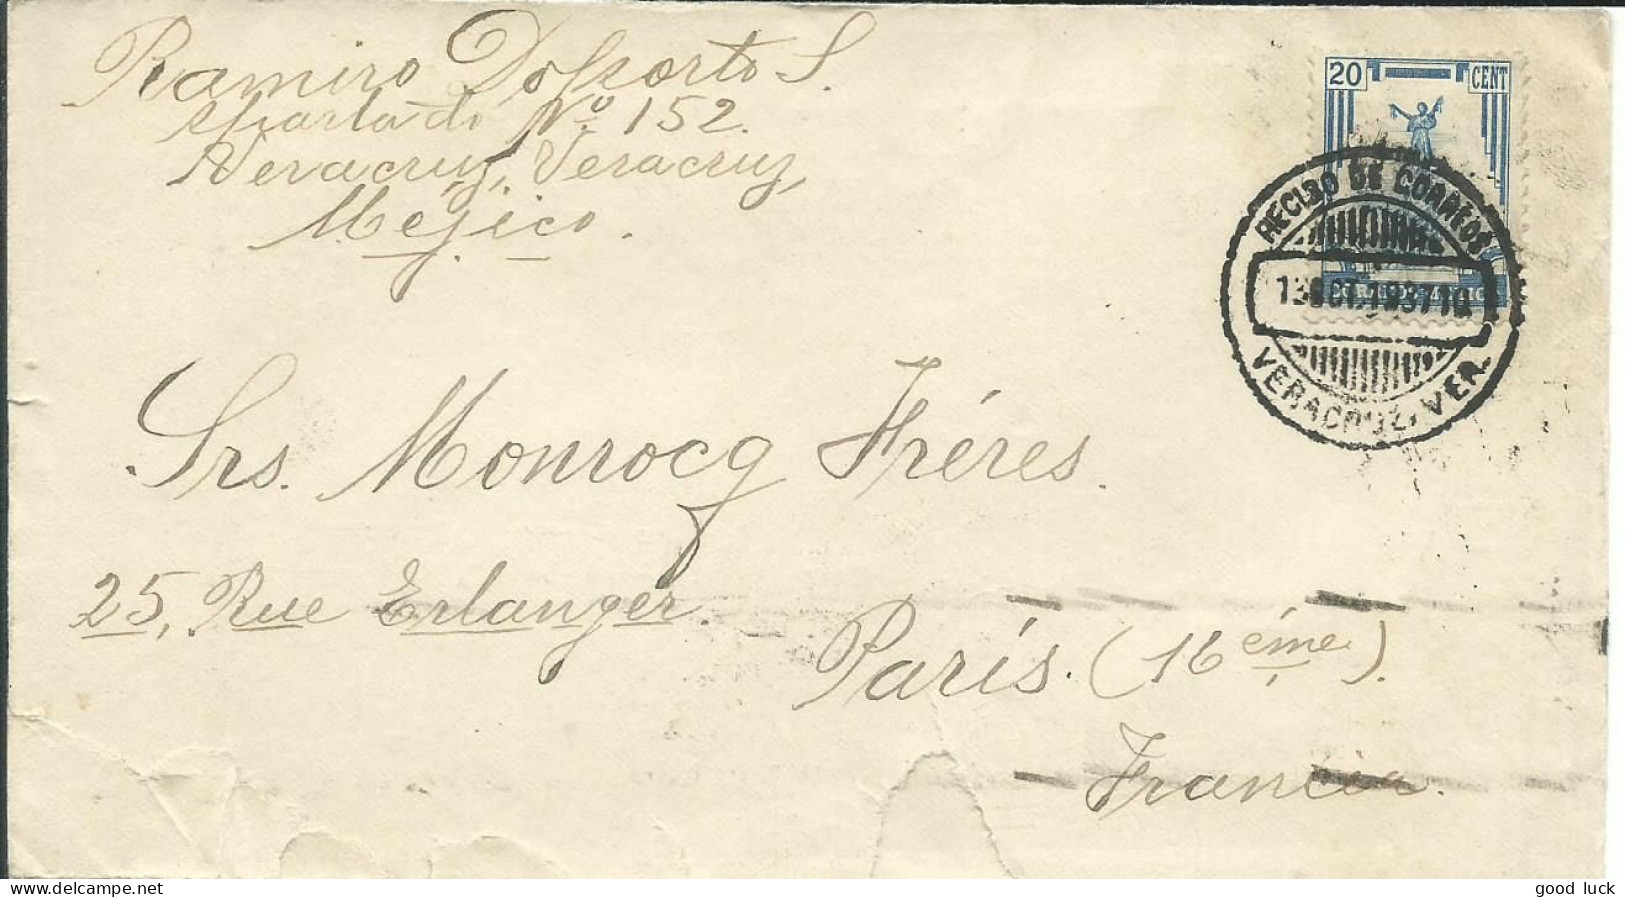 Ramiro Dosporto S.
Apartado Nº 152.
Veracruz, Veracruz,
Méjico.
20 CENT
RECIBO DE CORREOS
13 OCT. 1937 10
VERACRUZ, VER.
Srs. Monrocq Fréres.
25, Rue Erlanger.
París. (16 éme).
Francia.
good luck
www.delcampe.net